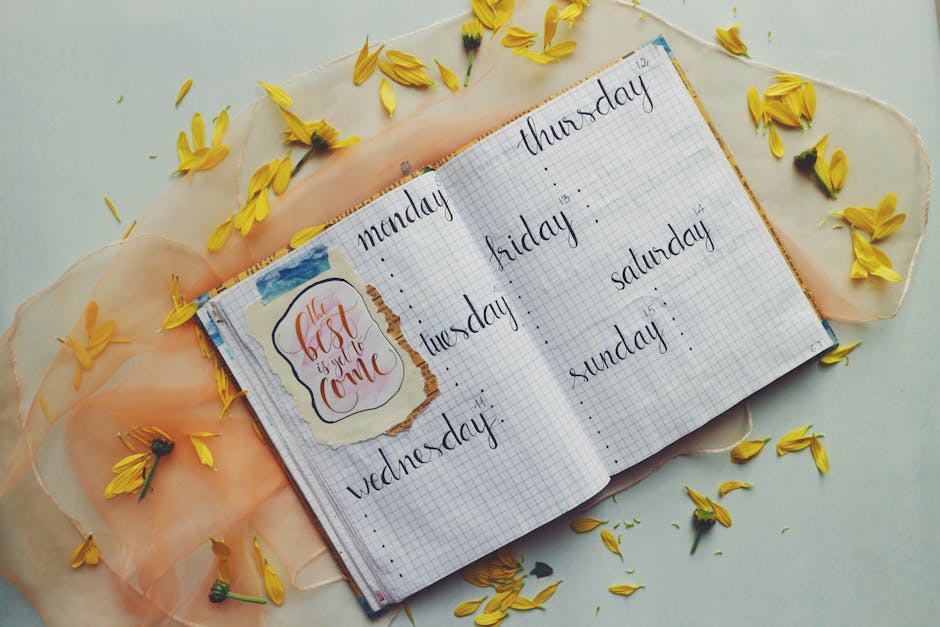 monday 9
the
best
is yet to
come
tuesday 10
wednesday 11
thursday 12
friday 13
saturday 14
sunday 15